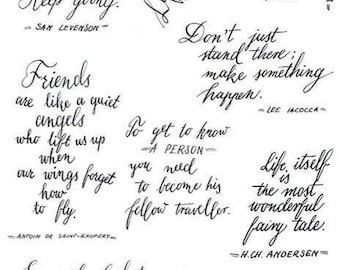 Keep going.
SAN LEVENSON
Don't just
stand there;
make something
happen.
LEE IACOCCA
Friends
are like a quiet
angels
who lift us up
when
our wings forget
how
to fly.
ANTOIN DE SAINT-EXUPERY
To get to know
A PERSON
you need
to become his
fellow traveller.
Life itself
is
the most
wonderful
fairy tale.
H.CH. ANDERSEN